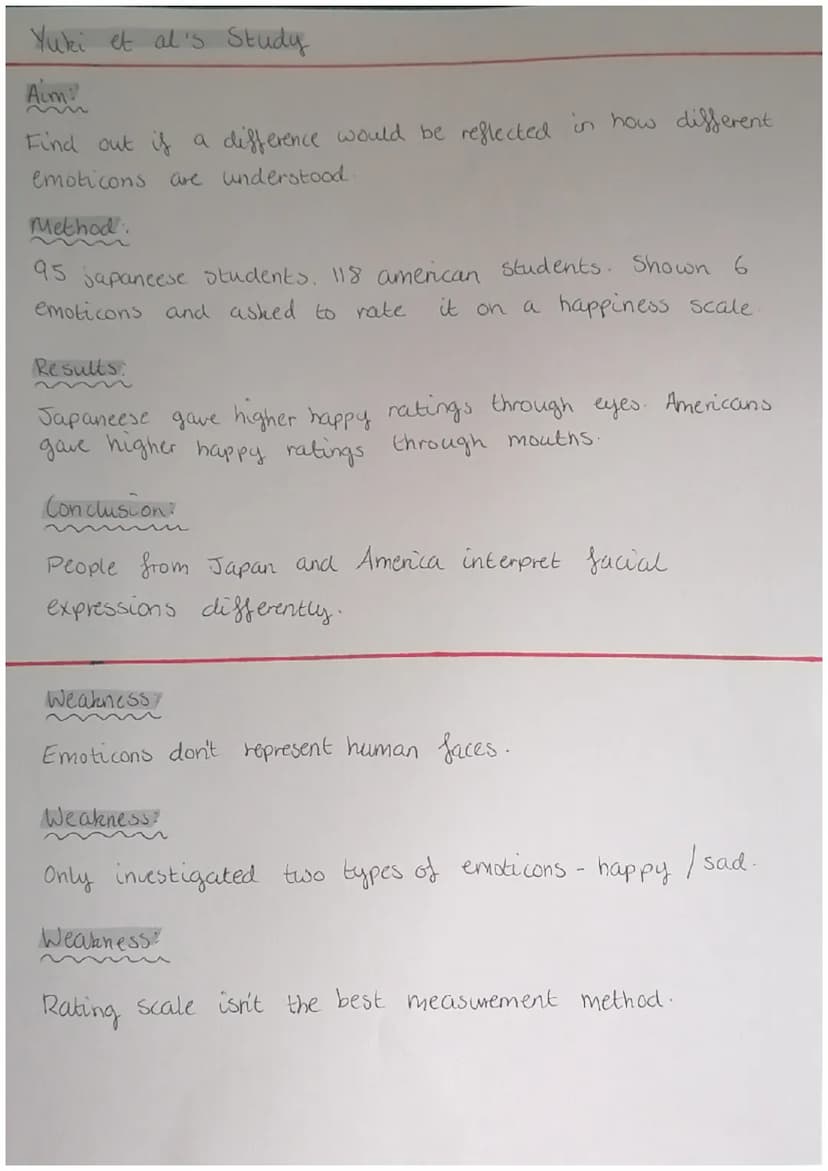 Yuki et al's Study
Aim:
Find out if a difference would be reflected in how different
emoticons are understood.
Method:
95 japaneese students. 118 american students. Shown 6
emoticons and asked to rate it on a happiness scale
Results:
Japaneese gave higher happy ratings through eyes. Americans
gave higher happy ratings through mouths.
Conclusion:
People from Japan and America interpret facial
expressions differently.
Weakness:
Emoticons don't represent human faces.
Weakness:
Only investigated two types of emoticons - happy / sad.
Weakness:
Rating scale isn't the best measurement method.